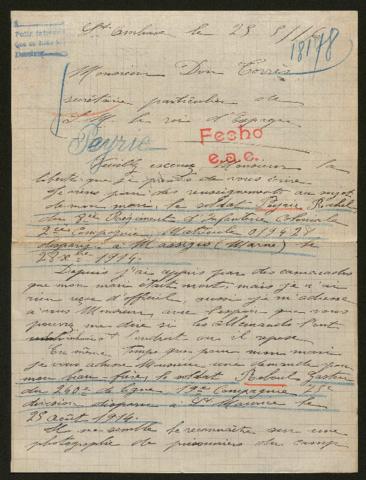 St Ambroix le 28 8/16
18178
Monsieur Don Torrès
secrétaire particulier de
S. M. le roi d'Espagne
Peyrie
Fecho
e.a.c.
Veuillez excuser Monsieur la
liberté que je prends de vous écrire
Je viens pour des renseignements au sujet
de mon mari, le soldat Peyrie
du 8ème Régiment d'Infanterie Coloniale
2ème Compagnie, Matricule 019428
disparu à Massiges (Marne) le
28 Xbre 1914.
Depuis j'ai appris par des camarades
que mon mari était mort; mais je n'ai
rien reçu d'officiel, aussi je m'adresse
à vous Monsieur, avec l'espoir que vous
pouvez me dire si les Allemands l'ont
l'endroit où il repose
En même temps que pour mon mari
je vous adresse Monsieur une demande pour
mon beau-frère, le soldat
du 240e de ligne 19e Compagnie
division disparu à St Maurice le
25 août 1914.
Il me semble le reconnaître sur une
photographie de prisonniers du camp